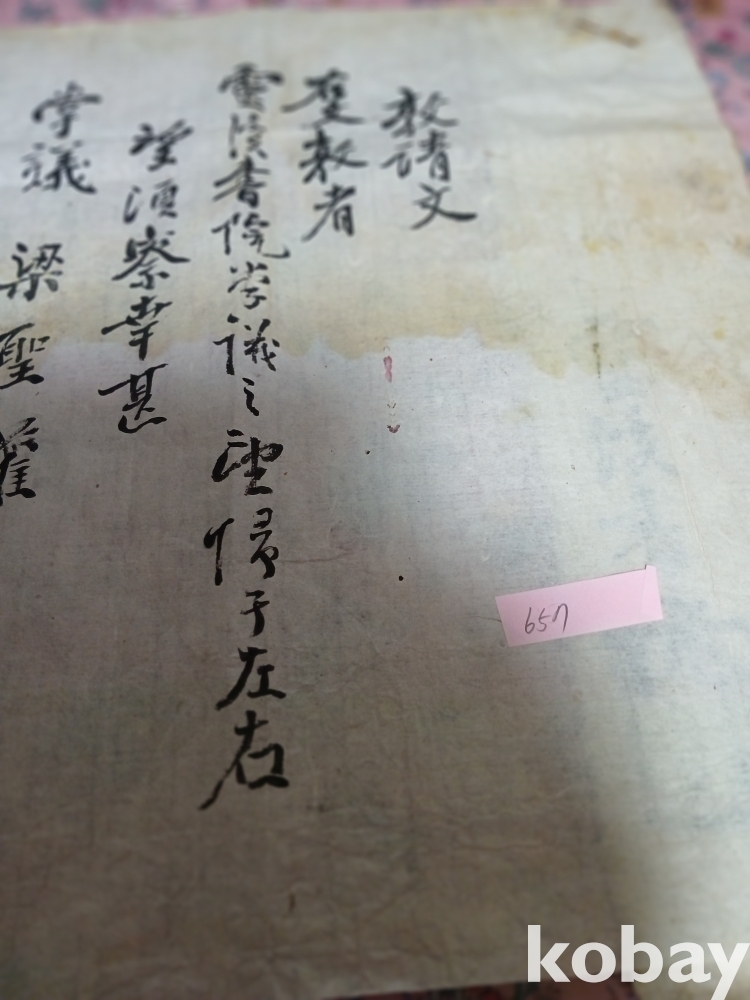 敦請文
右敦者
雲溪書院学議之望㱕于左右
望須察幸甚
掌議 梁聖
657
kobay